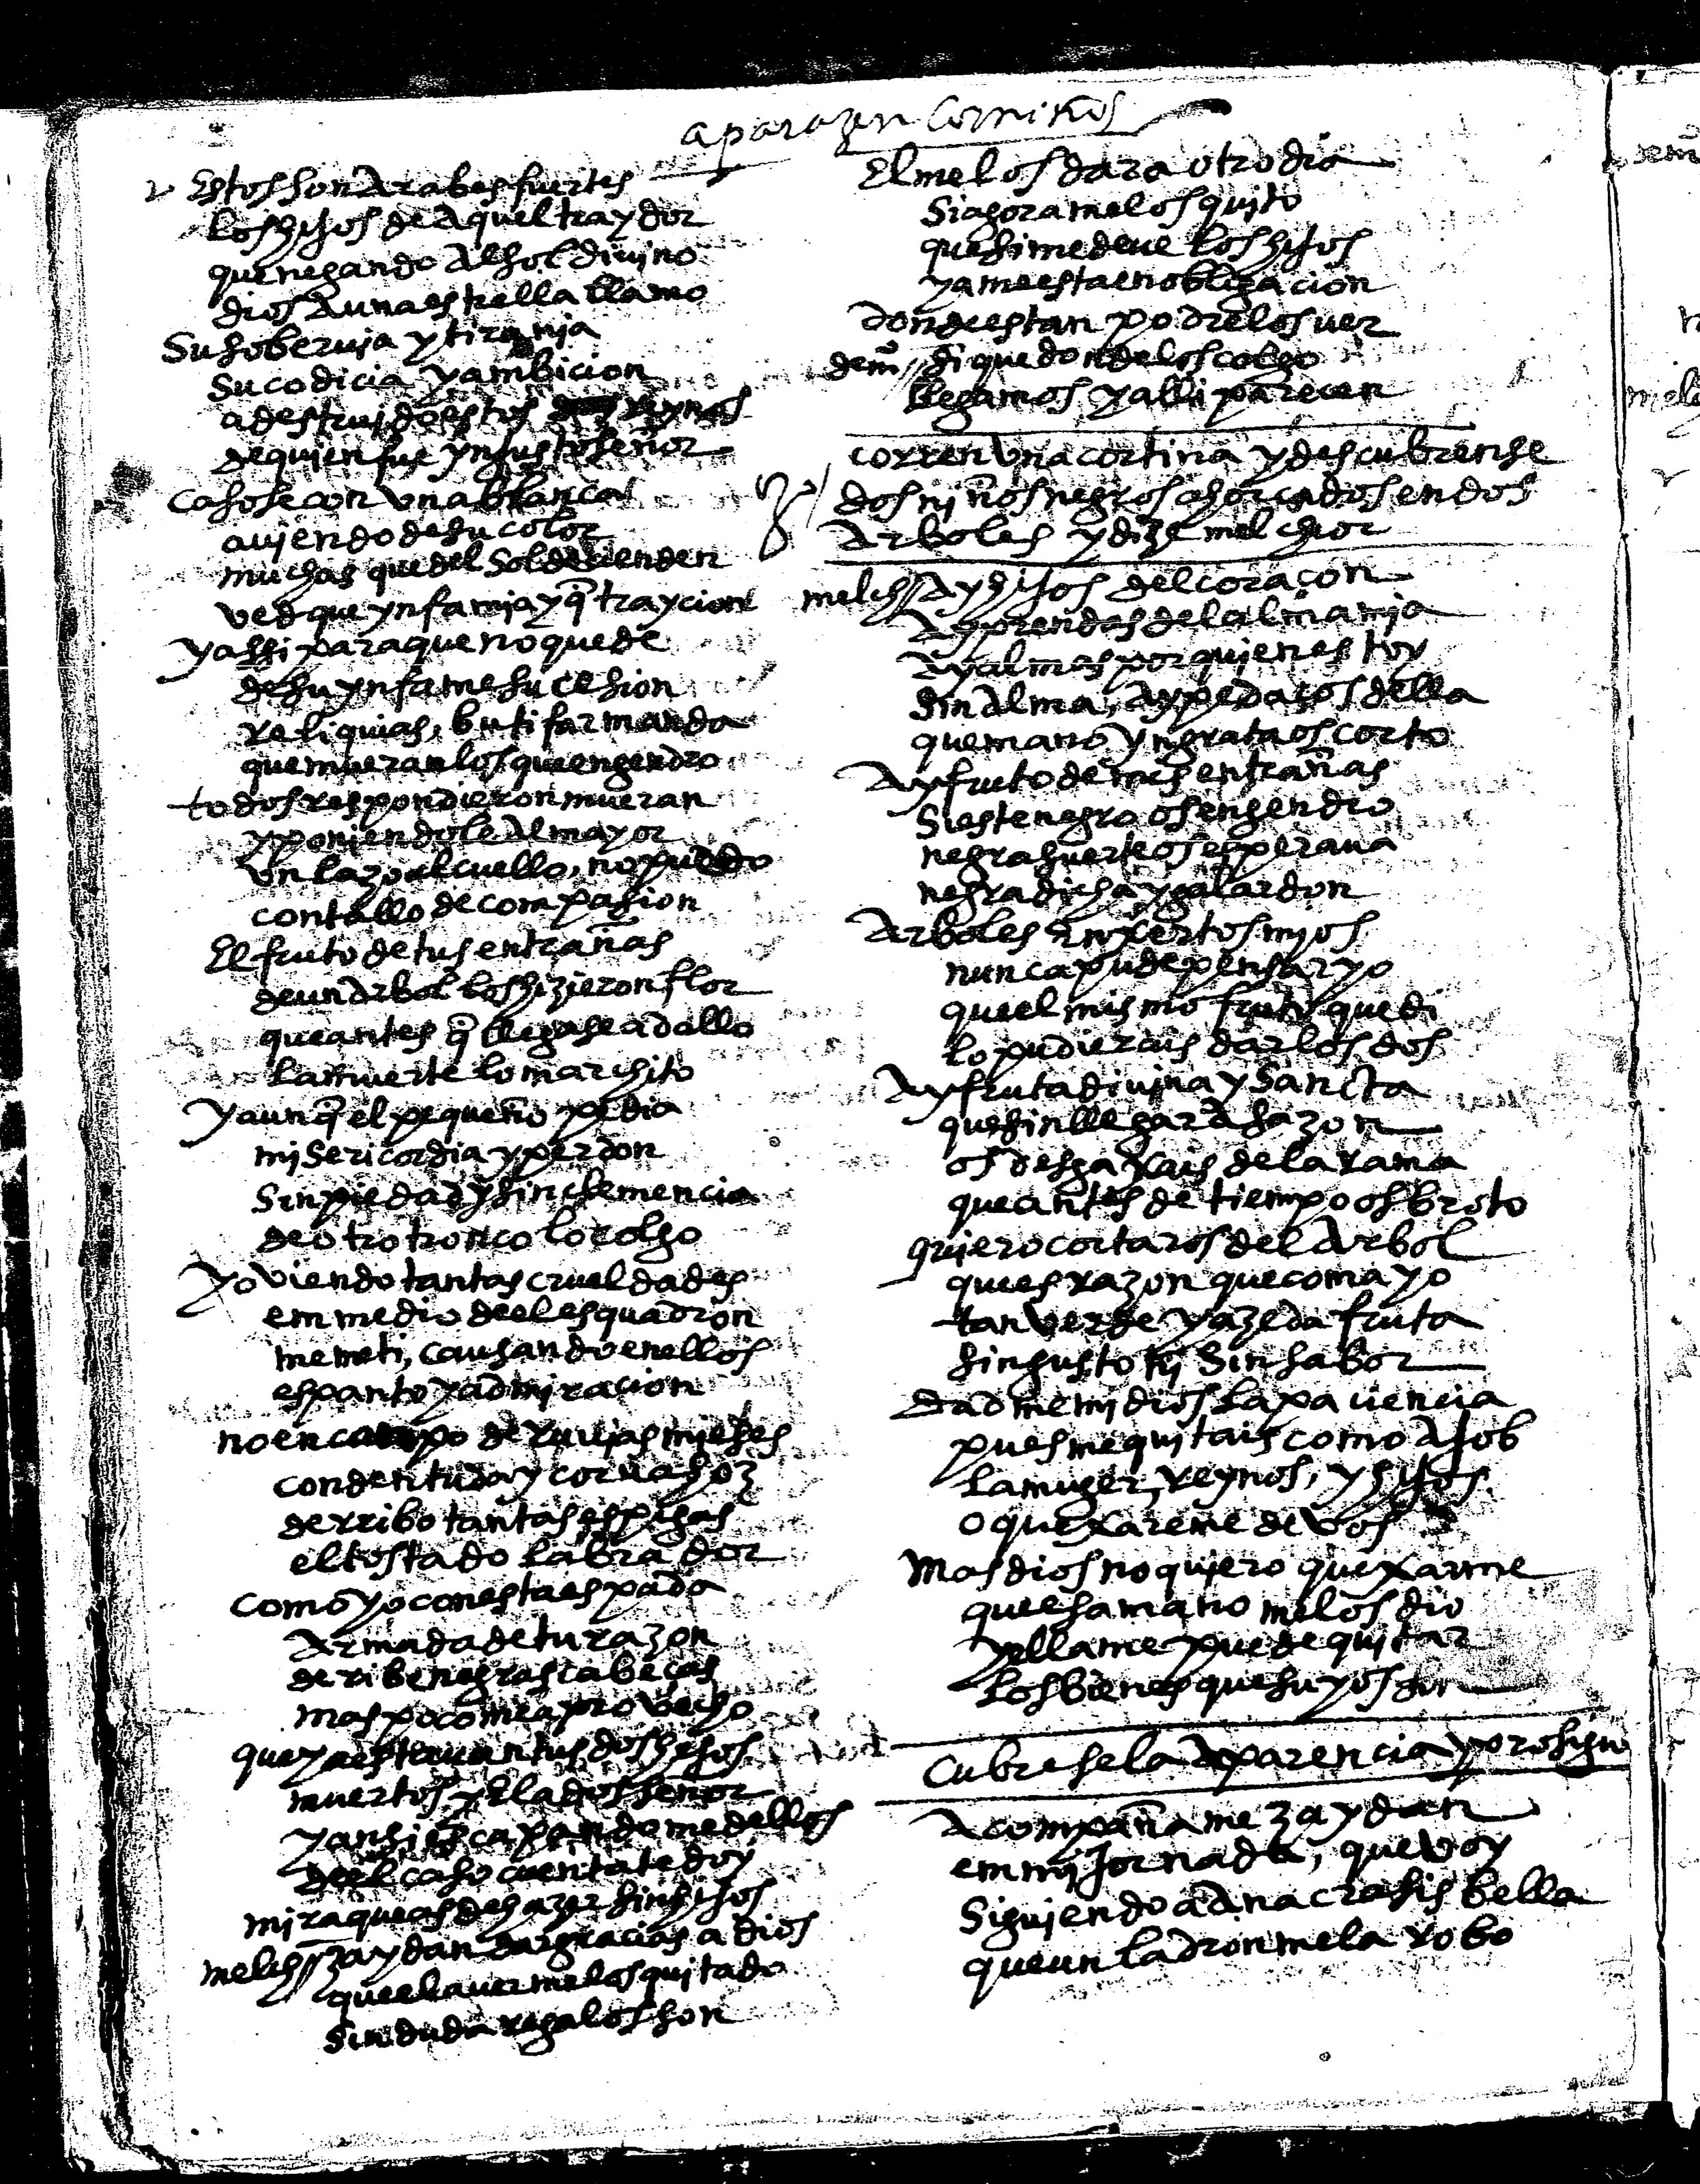 aparazen Con niños
Estos son Arabes fuertes
los hijos de Aquel traydor
que negando Al sol diuino
dios A una estrella llamo
Su soberuia y tirania
su codicia y ambicion
a destruido estos Reynos
de quien fue ynjusto señor
Casose con vna blanca
auiendo de su color
muchas que del Sol descienden
ved que ynfamia y q̃ traycion
y assi para que no quede
de su ynfame sucesion
Reliquias, butifar manda
que mueran los que engendro
todos respondieron mueran
y poniendole Al mayor
vn lazo al cuello, no puedo
contallo de compasion
El fruto de tus entrañas
de un Arbol los hizieron flor
que antes q̃ llegase a dallo
la muerte lo marchito
y aunq̃ el pequeño pedia
misericordia y perdon
Sin piedad y sin clemencia
de otro tronco lo colgo
yo viendo tantas crueldades
em medio de el esquadron
me meti, causando en ellos
espanto y admiracion
no en campo de Ruuias mieses
con dentuda y corua hoz
derribo tantas espigas
el tostado labrador
como yo con esta espada
Armada de tu razon
deribe negras cabeças
mas poco me aprovecho
que ya estauan tus dos hijos
muertos y Elados señor
y ansi escapandome dellos
de el caso cuenta te doy
mira que as de hazer sin hijos
melch// zaydan dar gracias a dios
que el auermelos quitado
Sin duda regalos son
El me los dara otro dia
Si agora me los quito
que si me deue los hijos
ya me esta en obligacion
donde estan podrelos ver
dem̃// Si que donde los colgo
llegamos y alli parecen
corren vna cortina y descubrense
dos niños negros ahorcados en dos
Arboles y dize melchior
melch// Ay hijos del coraçon
Ay prendas del alma mia
Ay almas por quien estoy
sin Alma, ay pedaços della
que mano yngrata os corto
Ay fruto de mis entrañas
Si este negro os engendro
negra suerte os esperaua
negra dicha y galardon
Arboles enxertos mios
nunca pude pensar yo
que el mismo fruto que di
lo pudierais dar los dos
Ay fruta diuina y Sancta
que sin llegar A sazon
os desgaxais de la rama
que antes de tiempo os broto
quiero cortaros del Arbol
que es razon que coma yo
tan verde y azeda fruta
sin gusto ni Sin sabor
dadme mi dios la paciencia
pues me quitais como A Job
la muger, reynos, y hijos
o quexareme de vos
mas dios no quiero quexarme
que esa mano me los dio
y ella me puede quitar
los bienes que suyos son
Cubrese la Aparencia y prosigu
Acompañame zaydan
em mi Jornada, que voy
Siguiendo a Anacrasis bella
que un ladron me la robo